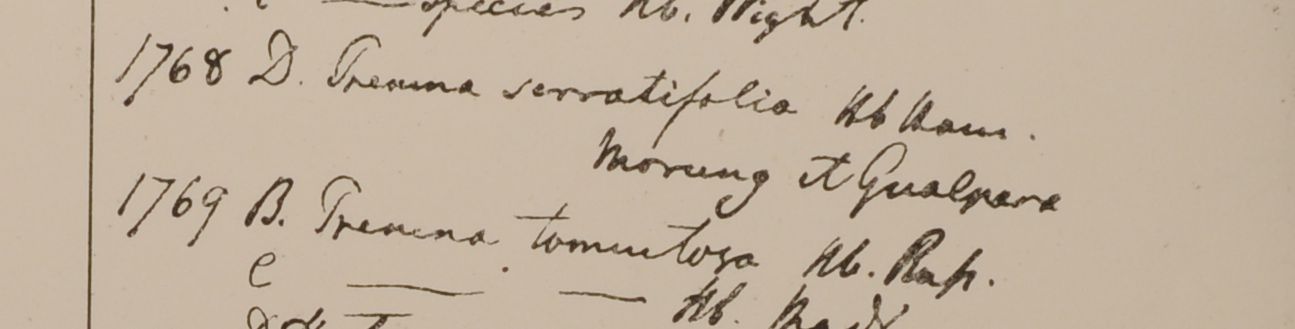 ——— species Hb. Wight.
1768 D. Premna serratifolia Hb Ham.
Morung et Gualpara
1769 B. Premna tomentosa Hb. Rup.
C ——— —— Hb.